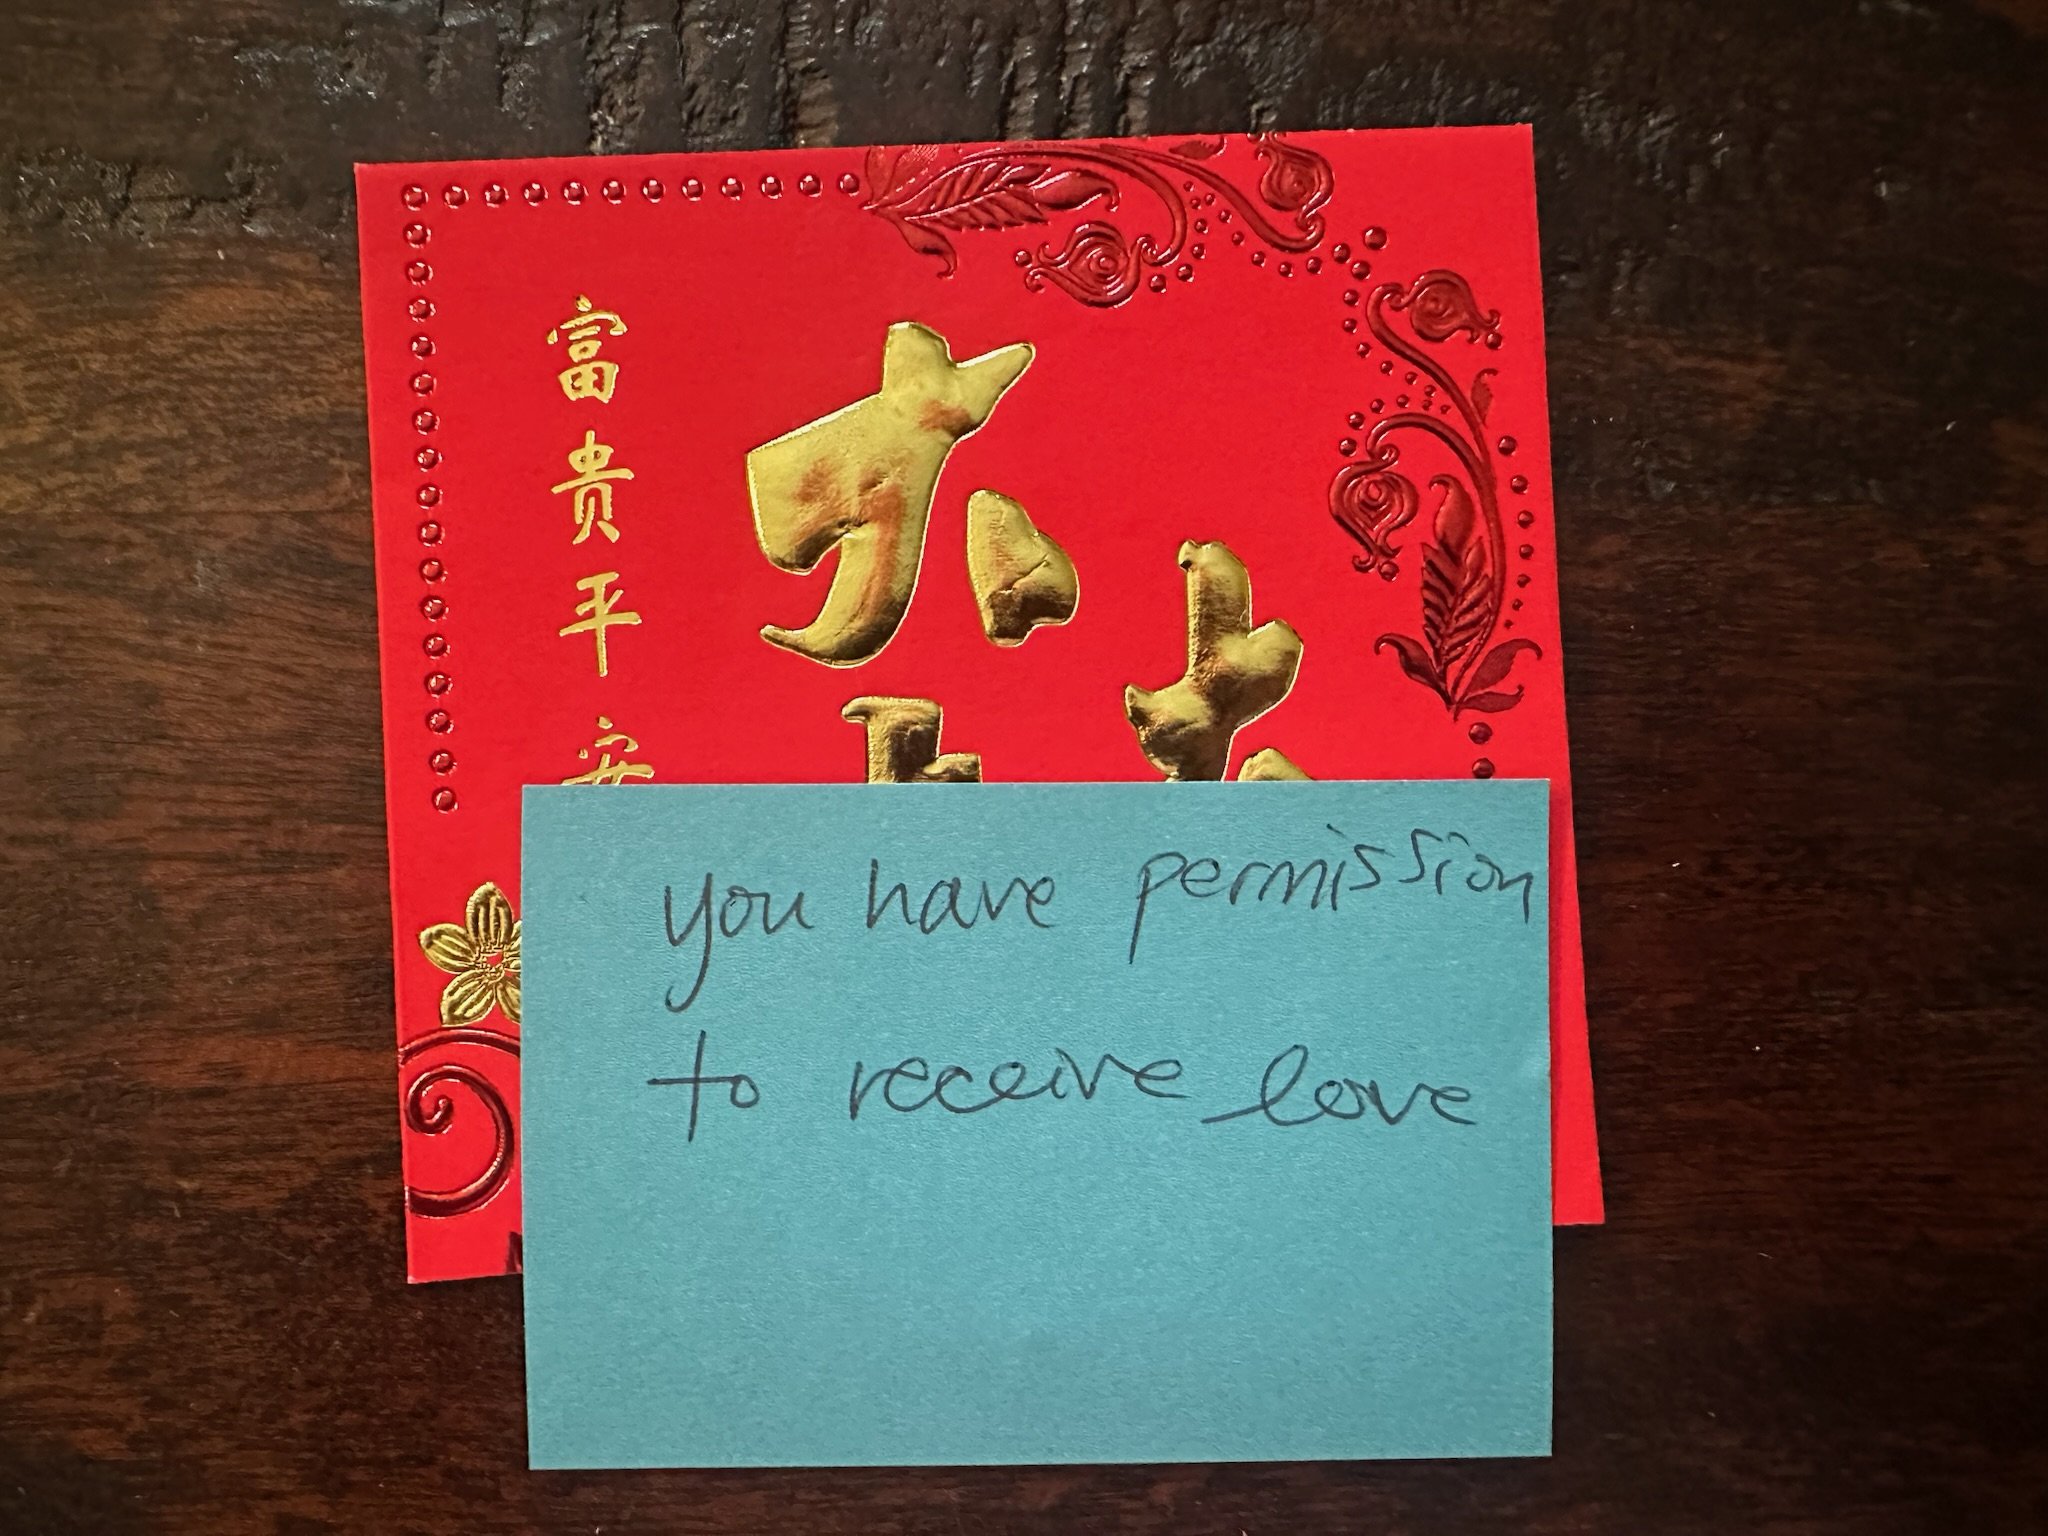 富贵平安
you have permission
to receive love